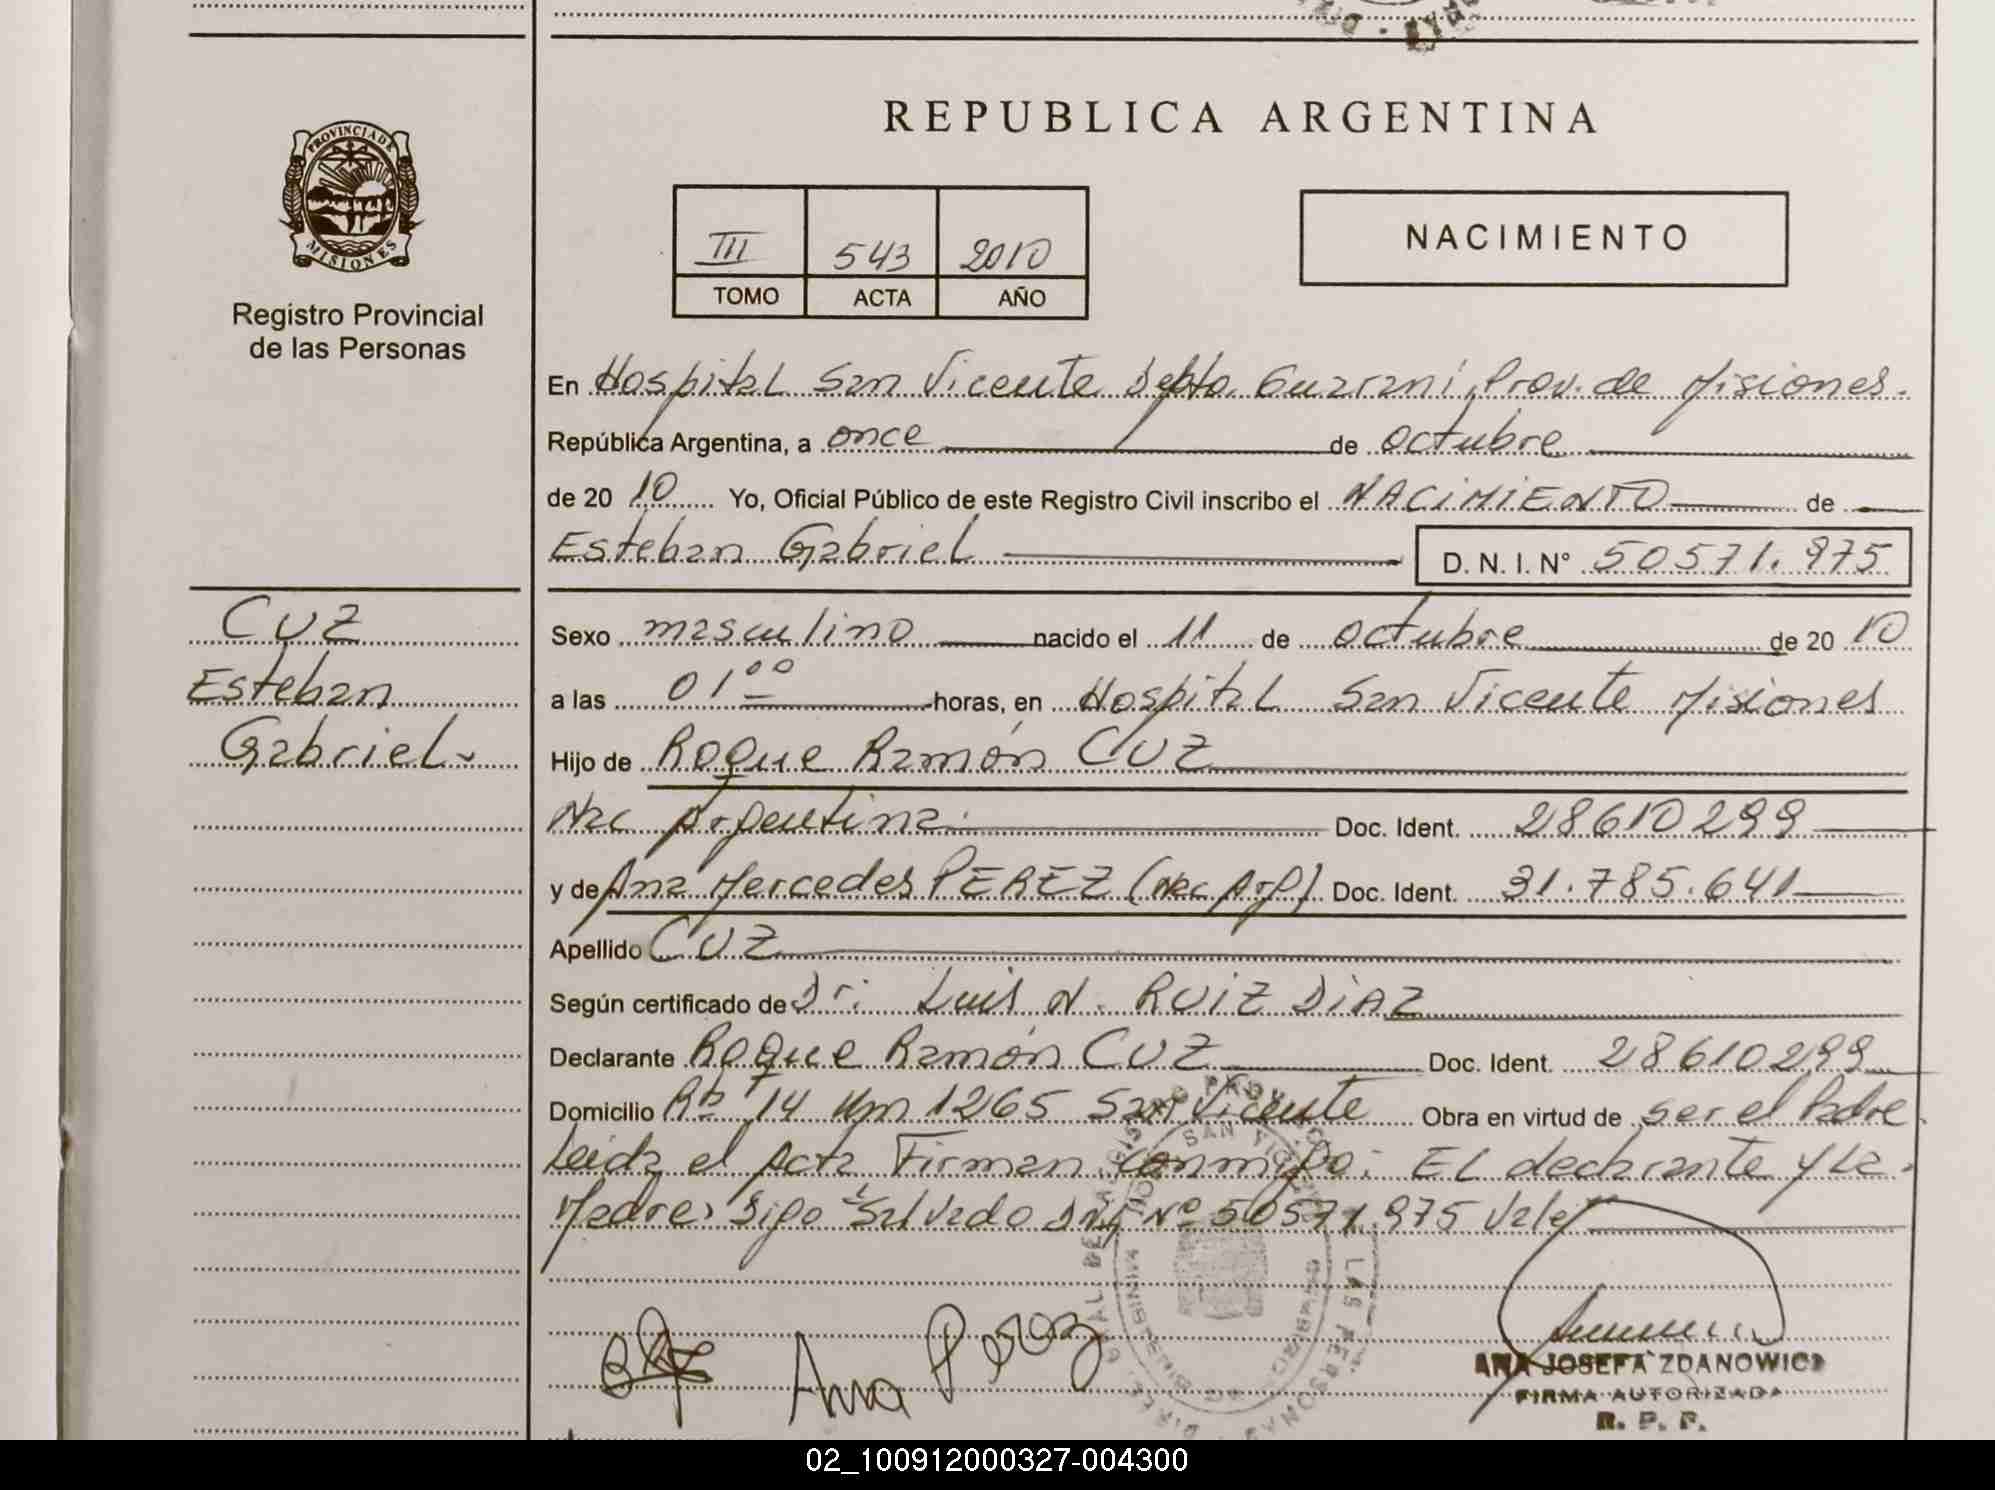 REPUBLICA ARGENTINA
PROVINCIA DE
MISIONES
Registro Provincial
de las Personas
III 543 2010
TOMO ACTA AÑO
NACIMIENTO
En Hospital San Vicente Depto. Guaraní, Prov. de Misiones.
República Argentina, a once de octubre
de 20 10 Yo, Oficial Público de este Registro Civil inscribo el NACIMIENTO de
Esteban Gabriel D. N. I. N° 50571.975
CUZ
Esteban
Gabriel
Sexo masculino nacido el 11 de octubre de 20 10
a las 01 00 horas, en Hospital San Vicente Misiones
Hijo de Roque Ramón CUZ
Nac Argentina. Doc. Ident. 28610299
y de Ana Mercedes PEREZ (Nac Arg) Doc. Ident. 31.785.641
Apellido CUZ
Según certificado de Dr. Luis N. RUIZ DIAZ
Declarante Roque Ramón CUZ Doc. Ident. 28610299
Domicilio 14 Km 1265 San Vicente Obra en virtud de ser el Padre
Leida el Acta Firman conmigo: EL declarante y La
Madre, Digo Salvado DNI Nº 50571.975 Vale
Ana Perez
ANA JOSEFA ZDANOWICZ
FIRMA AUTORIZADA
R. P. P.
02_100912000327-004300